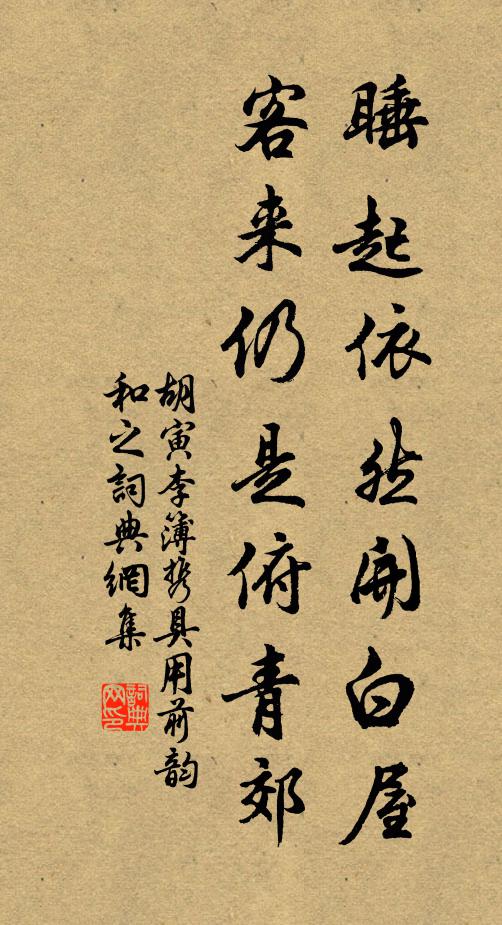 睡起依然開白屋
客来仍是俯青郊
胡寅李簿携具用前韵
和之詞典網集
詞典网印